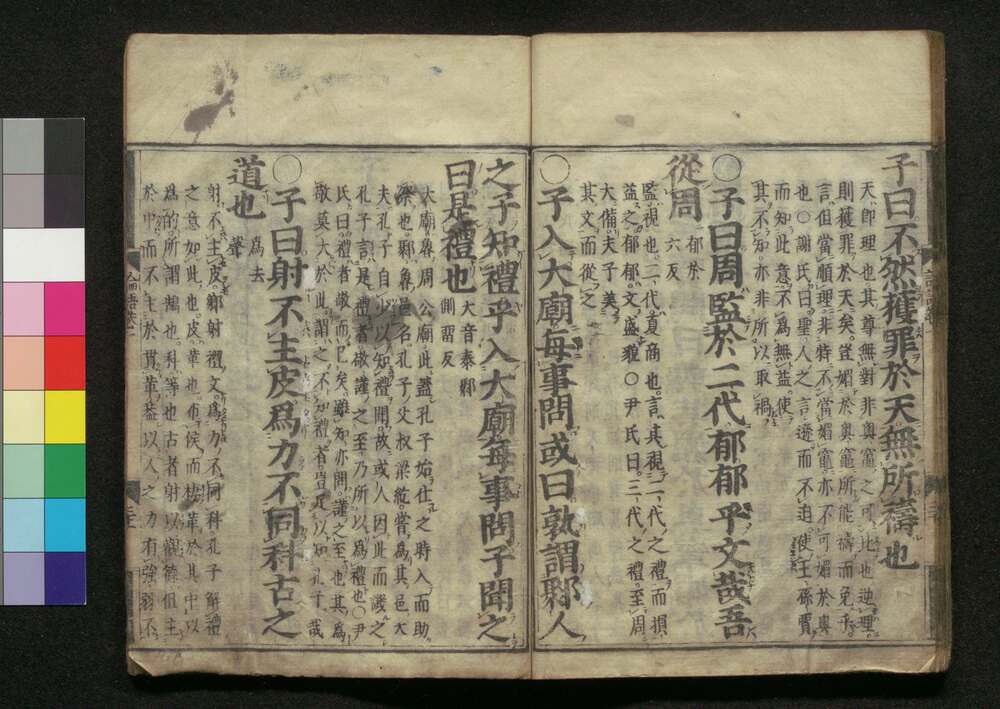 子曰不然獲罪於天無所禱也
天即理也其尊無對非奧竈之可比也逆理
則獲罪於天矣豈媚於奧竈所能禱而免乎
言但當順理非特不當媚竈亦不可媚於奧
也○謝氏曰聖人之言遜而不迫使王孫賈
而知此意不爲無益使
其不知亦非所以取禍
○子曰周監於二代郁郁乎文哉吾
從周
郁於
六反
監視也二代夏商也言其視二代之禮而損
益之郁郁文盛貌○尹氏曰三代之禮至周
大備夫子美
其文而從之
○子入大廟每事問或曰孰謂鄹人
之子知禮乎入大廟每事問子聞之
曰是禮也
大音泰鄹
側留反
大廟魯周公廟此蓋孔子始仕之時入而助
祭也鄹魯邑名孔子父叔梁紇嘗爲其邑大
夫孔子自少以知禮聞故或人因此而譏之
孔子言是禮者敬謹之至乃所以爲禮也○尹
氏曰禮者敬而已矣雖知亦問謹之至也其爲
敬莫大於此謂之不知禮者豈足以知孔子哉
○子曰射不主皮爲力不同科古之
道也
爲去
聲
射不主皮鄉射禮文爲力不同科孔子解禮
之意如此也皮革也布侯而棲革於其中以
爲的所謂鵠也科等也古者射以觀德但主
於中而不主於貫革蓋以人之力有強弱不